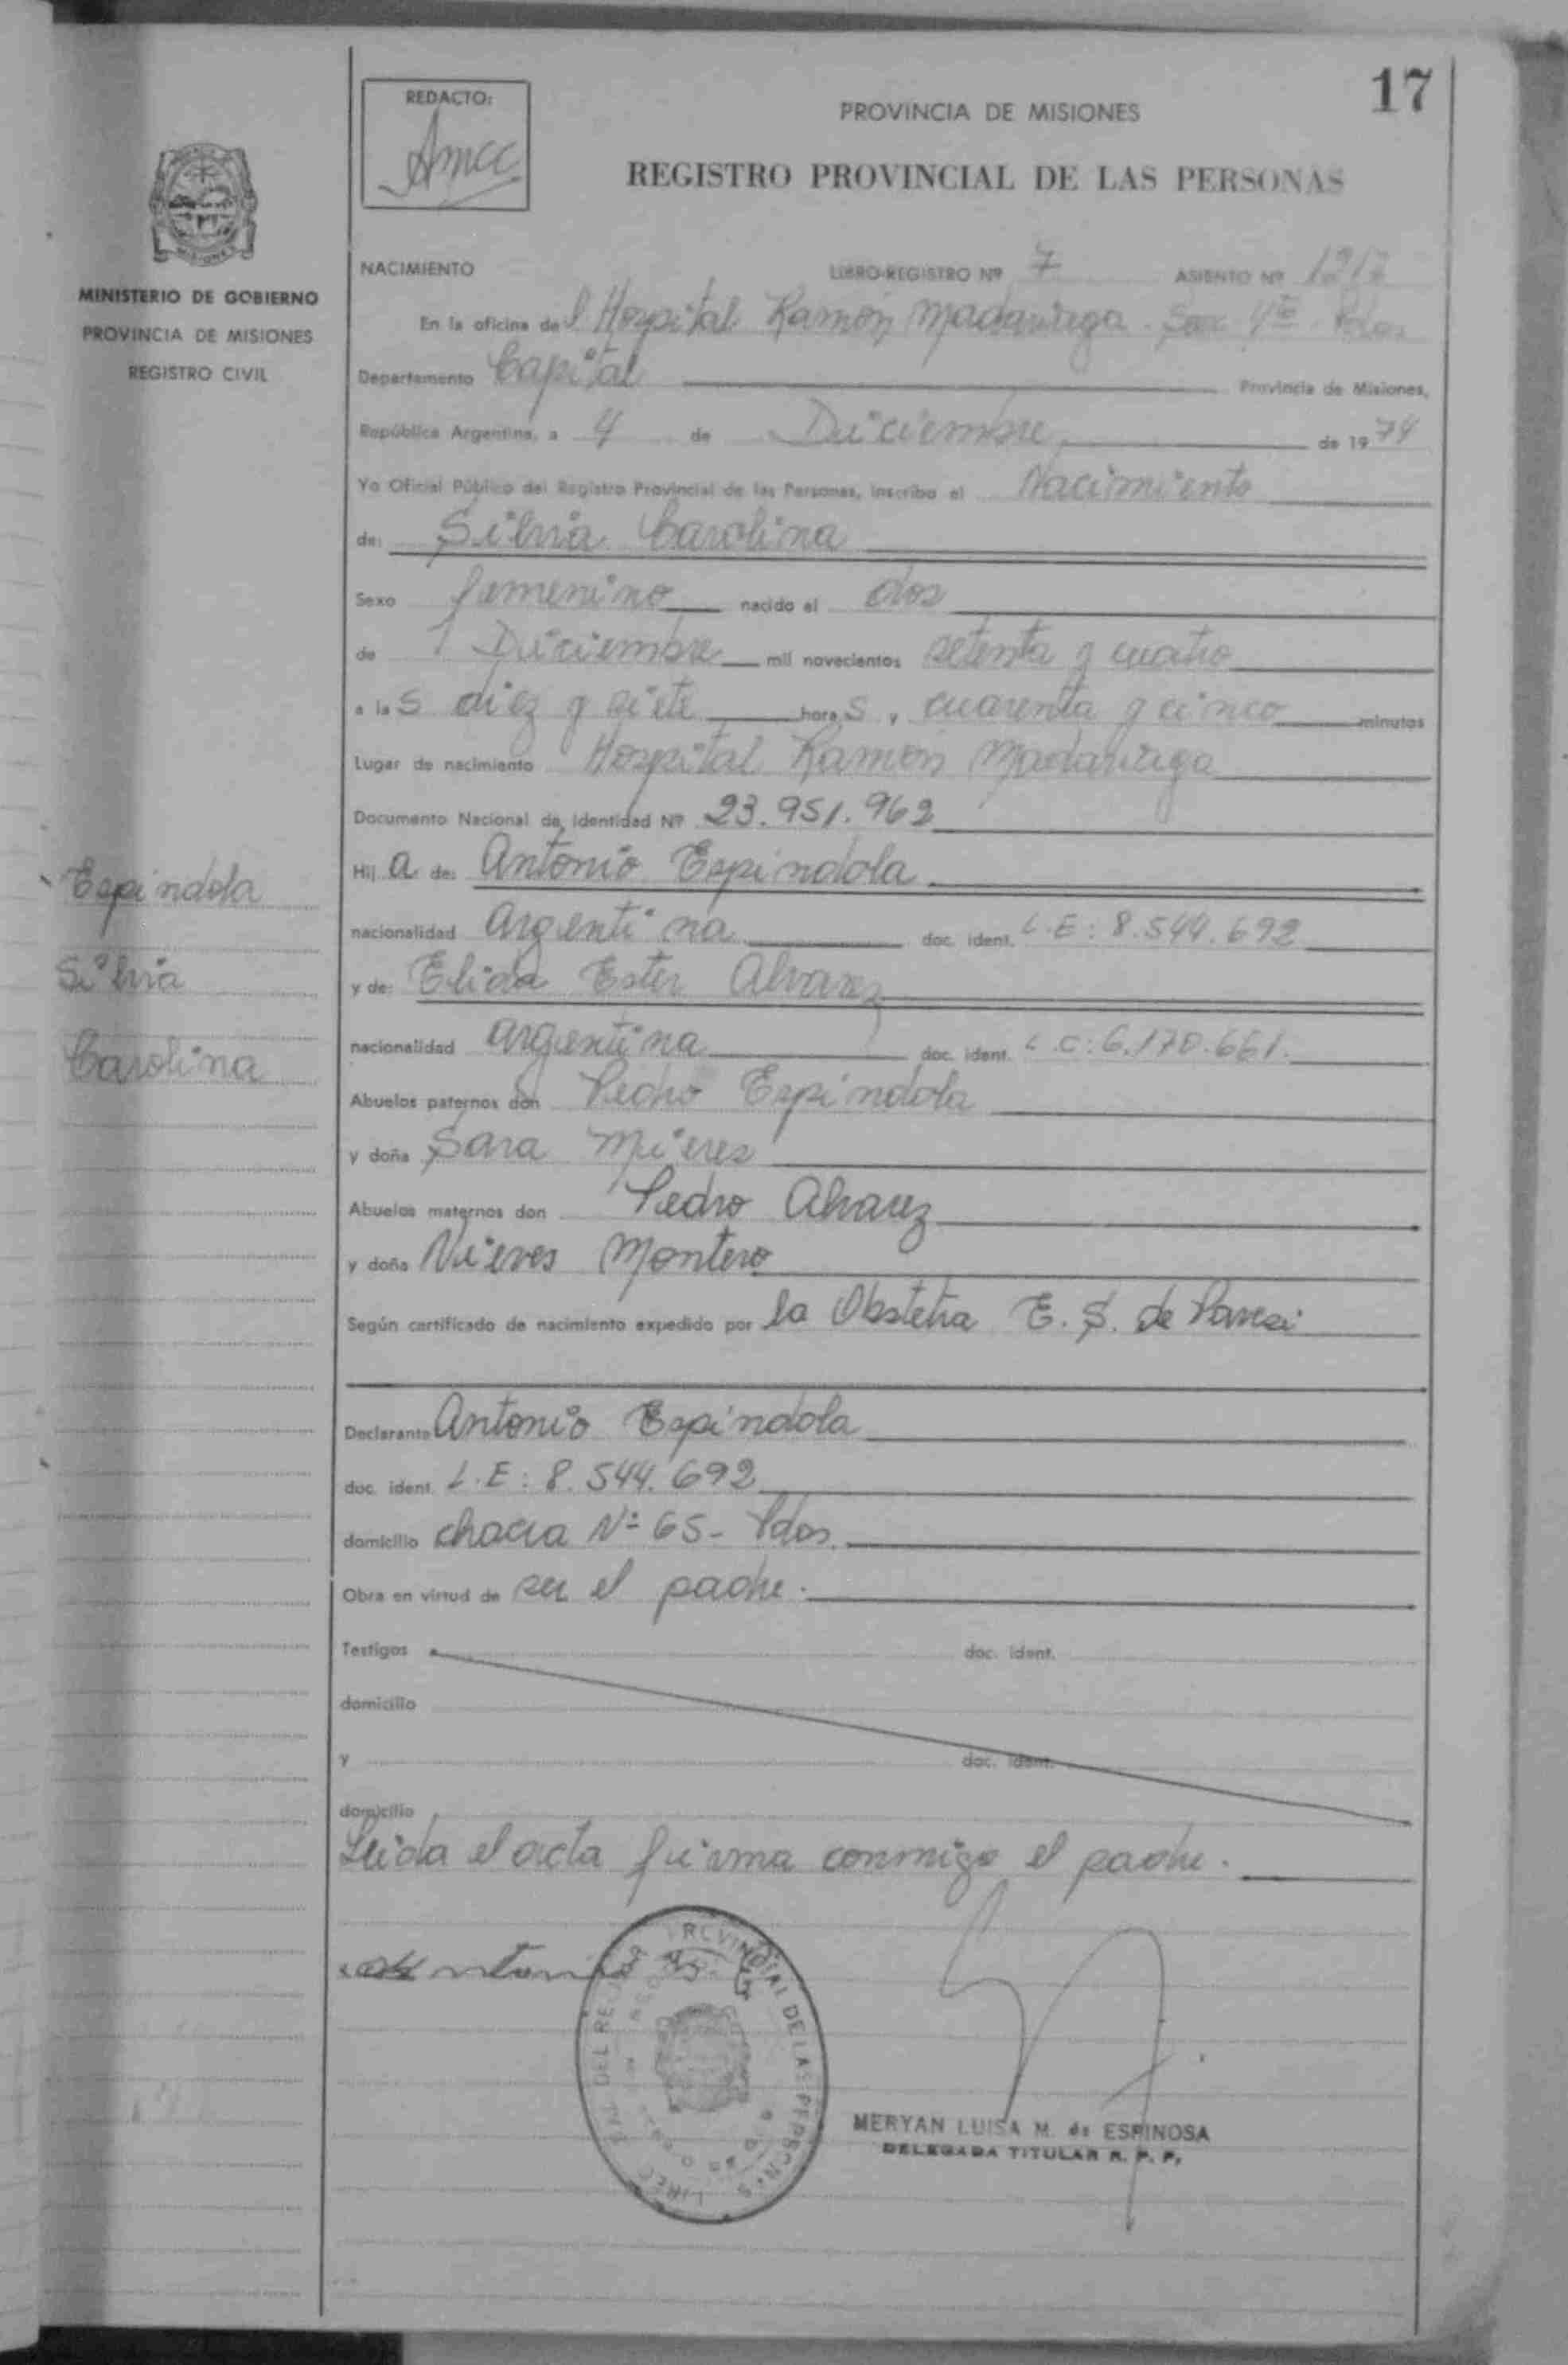 17
REDACTO:
Amcc
PROVINCIA DE MISIONES
REGISTRO PROVINCIAL DE LAS PERSONAS
MISIONES
MINISTERIO DE GOBIERNO
PROVINCIA DE MISIONES
REGISTRO CIVIL
NACIMIENTO LIBRO-REGISTRO Nº 7 ASIENTO Nº 1217
En la oficina del Hospital Ramón Madariaga. Secc 4ta Pdas
Departamento Capital Provincia de Misiones,
República Argentina, a 4 de Diciembre de 1974
Yo Oficial Público del Registro Provincial de las Personas, inscribo el Nacimiento
de: Silvia Carolina
Sexo femenino nacido el dos
de Diciembre mil novecientos setenta y cuatro
a las diez y siete horas, cuarenta y cinco minutos
Lugar de nacimiento Hospital Ramón Madariaga
Documento Nacional de Identidad Nº 23.951.962
Hija de: Antonio Espindola
nacionalidad argentina doc. ident. L.E: 8.544.692
y de: Elida Ester Alvarez
nacionalidad argentina doc. ident. L.C: 6.170.661.
Abuelos paternos don Pedro Espindola
y doña Sara Mieres
Abuelos maternos don Pedro Alvarez
y doña Nieves Montero
Según certificado de nacimiento expedido por la Obstetra E. S. de
Declarante Antonio Espindola
doc. ident. L.E: 8.544.692
domicilio chacra Nº 65- Pdas.
Obra en virtud de ser el padre.
Testigos doc. ident.
domicilio
y doc. ident.
domicilio
Leida el acta firma conmigo el padre.
Espindola
Silvia
Carolina
Antonio
PROVINCIAL DE LAS PERSONAS
MERYAN LUISA M. de ESPINOSA
DELEGADA TITULAR R. P. P.